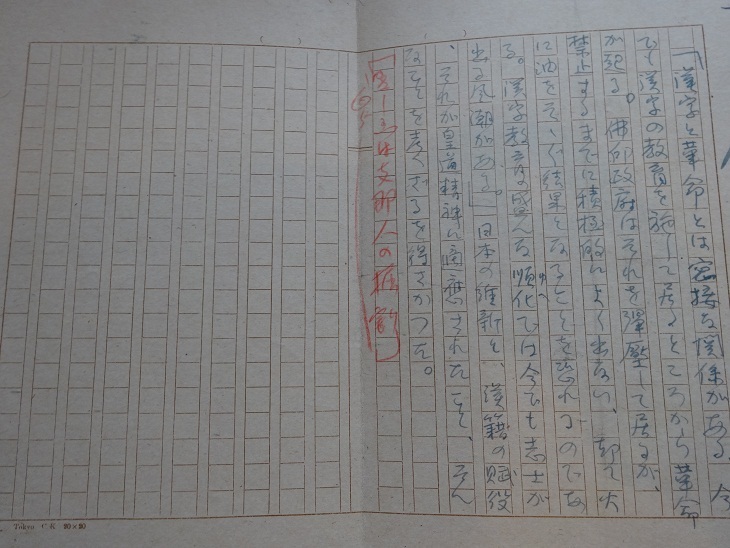 「漢字と革命とは密接な関係がある。今
でも漢字の教育を施して居るところから革命
が起る。佛印政府はそれを弾壓して居るが、
禁止するまでに積極的によく出ない、却て火
に油をそゝぐ結果となることを恐れるのであ
る。漢字教育の盛んな順化では今でも志士が
出る風潮がある」。日本の維新と、漢籍の賦役
、それが皇道精神に適應されたこと、そん
なことを考へざるを得なかつた。
は支那人の掘割
Tokyo 20×20